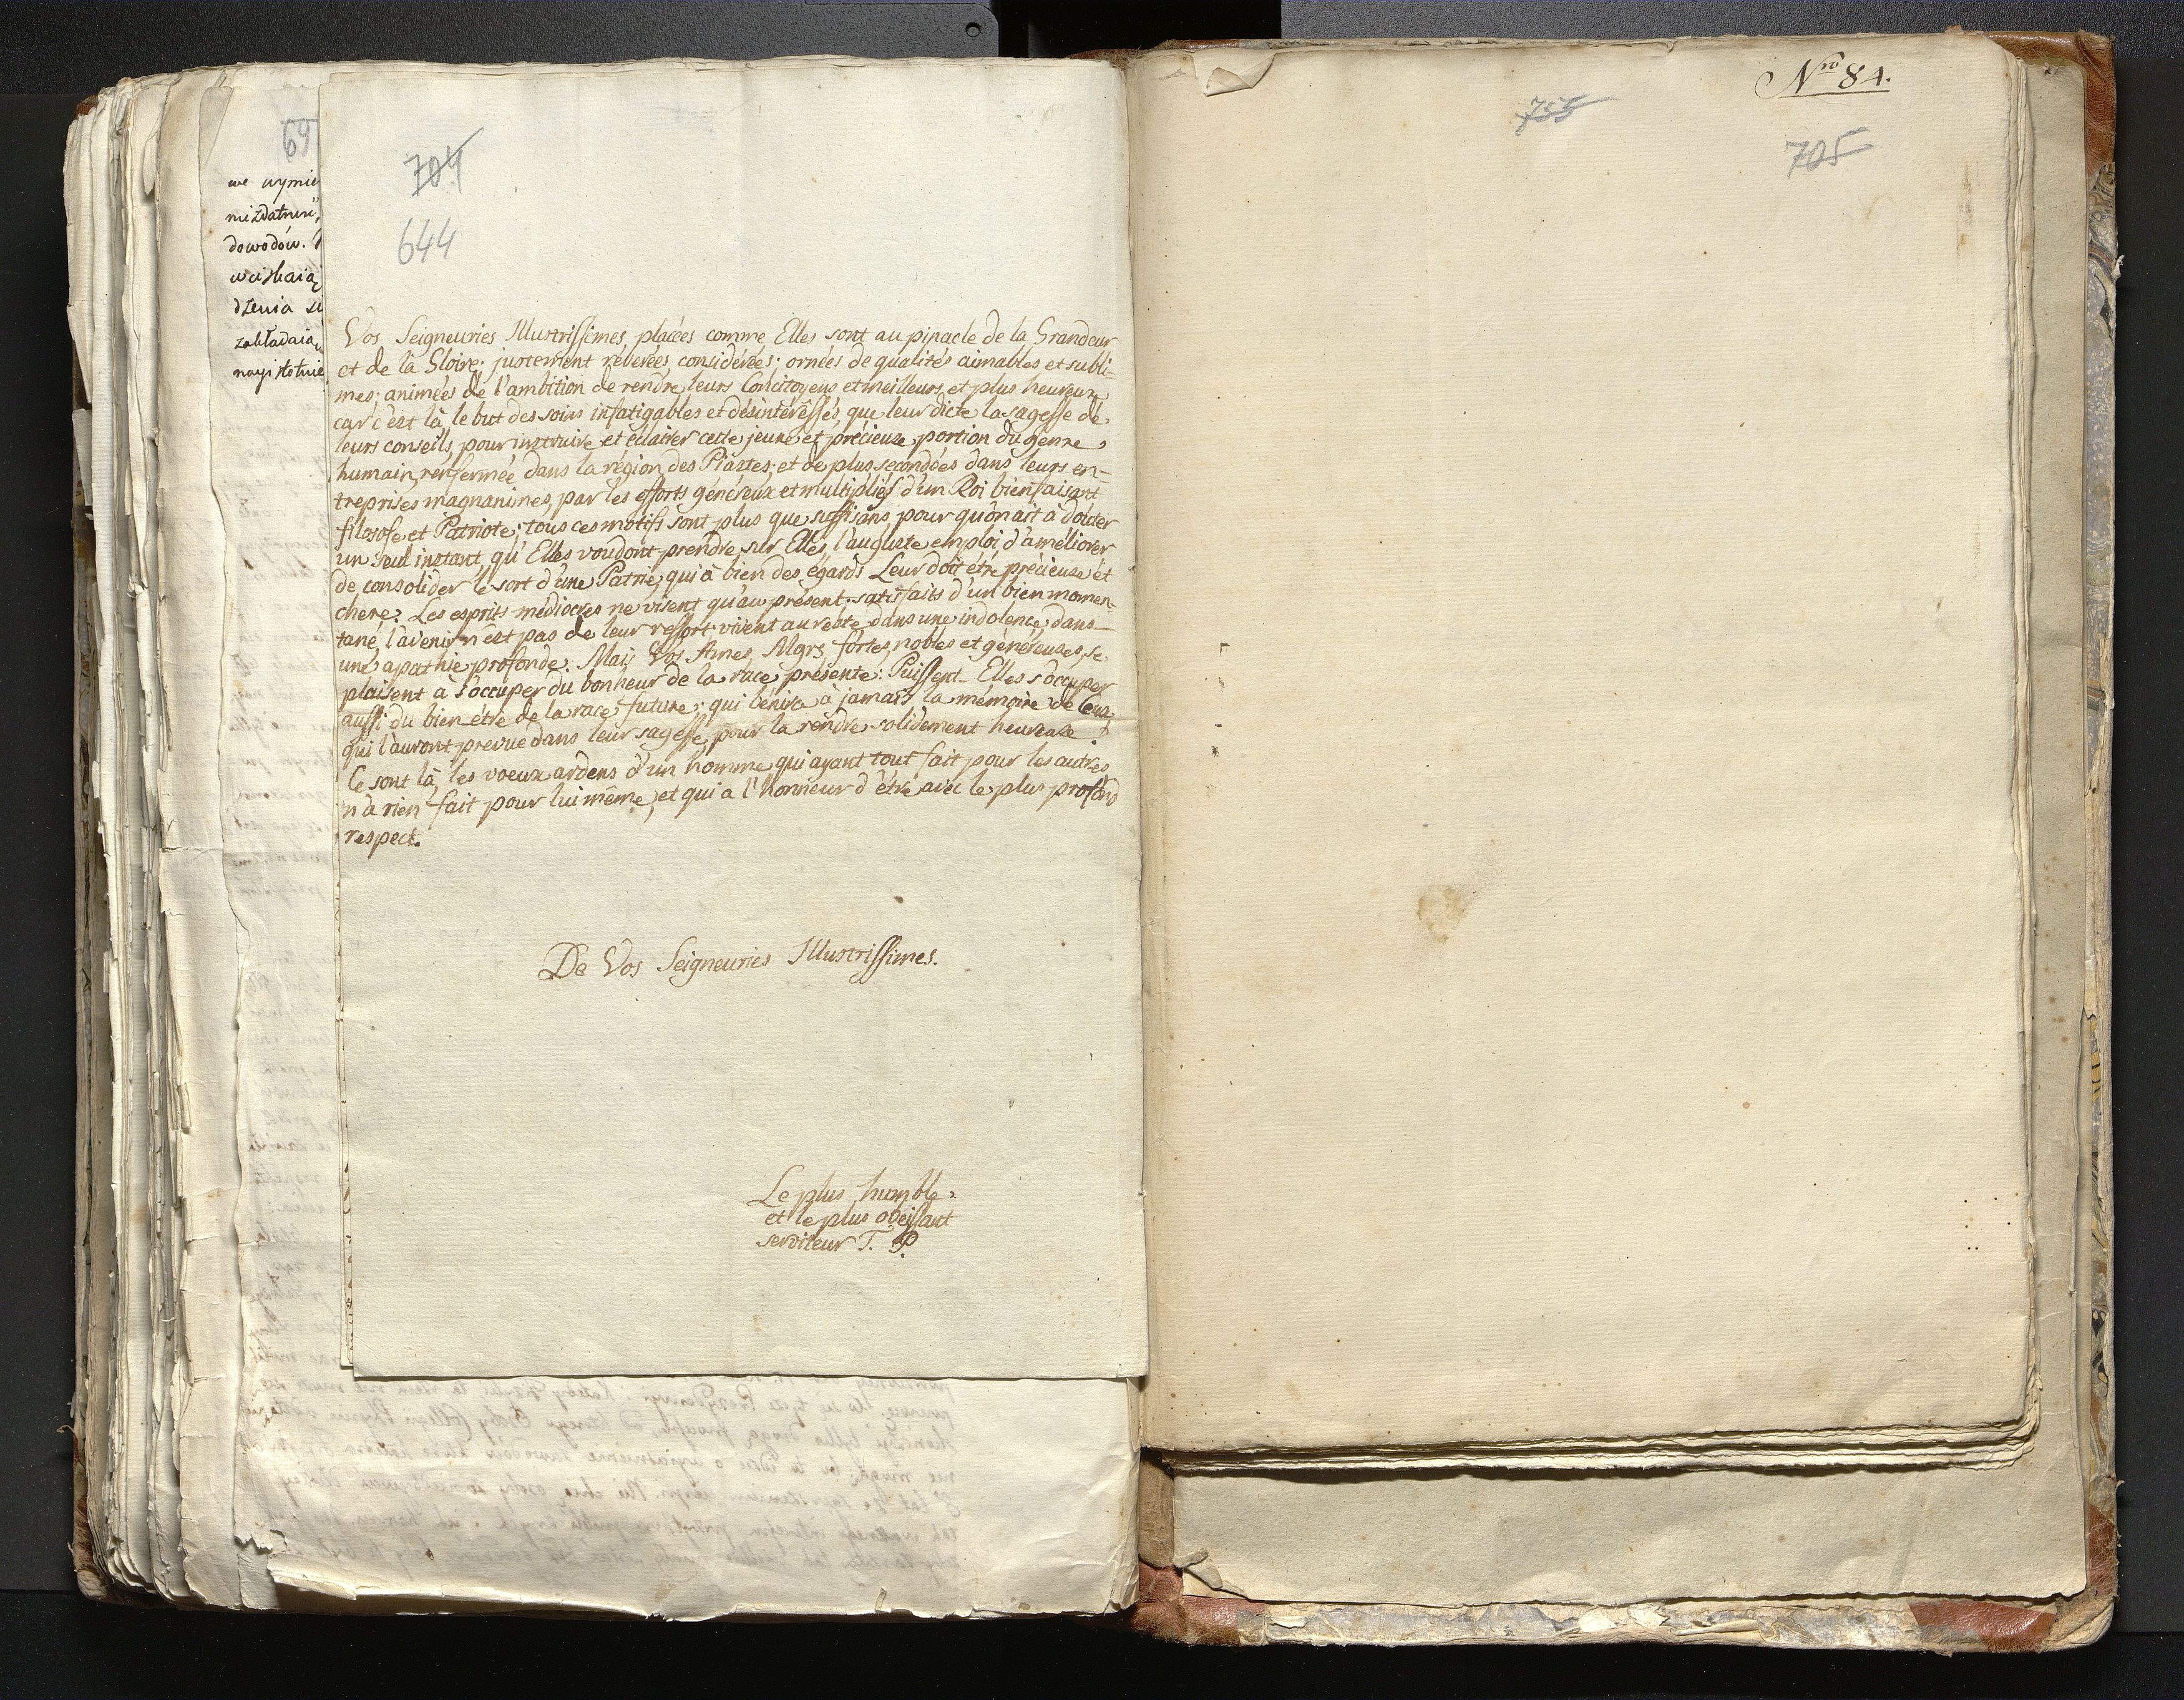 69
we wymie
niezdatnw
dowodów.
wciskaią
dzenia
zakładaia
nayistotnie
704
644
Vos Seigneuries Illustrissimes, placées comme Elles sont au pinacle de la Grandeur
et de la Gloire; justement réverées, considérées; ornées de qualités aimables et subli-
mes; animées de l'ambition de rendre leurs Concitoyens et meilleurs, et plus heureux
car c'est là, le but des soins infatigables et désintéressés, que leur dicte la sagesse de
leurs conseils, pour instruire et éclairer cette jeune et précieuse portion du genre
humain, renfermée dans la région des Piastes; et de plus secondées dans leurs en-
treprises magnanimes, par les efforts généreux et multipliés d'un Roi bienfaisant
filosofe et Patriote; tous ces motifs sont plus que suffisans, pour qu'on ait à douter
un seul instant, qu'Elles voudont prendre sur Elles, l'auguste emploi d'améliorer
de consolider le sort d'une Patrie, qui à bien des égards Leur doit être précieuse et
chere? Les esprits médiocres ne visent qu'au présent; satisfaits d'un bien momen-
tané, l'avenir n'est pas de leur ressort; vivent au reste dans une indolence, dans
une apathie profonde. Mais Vos Ames, Mgrs, fortes, nobles et généreuses, se
plaisent à s'occuper du bonheur de la race présente: Puissent-Elles s'occuper
aussi du bien-être de la race future; qui bénira à jamais la mémoire de Ceux,
qui l'auront prevue dans leur sagesse, pour la rendre solidement heureuse!
Ce sont là, les voeux ardens d'un homme, qui ayant tout fait pour les autres,
n'a rien fait pour lui même, et qui a l'honneur d'être avec le plus profond
respect.
De Vos Seigneuries Illustrissimes.
Le plus humble,
et le plus obéissant
serviteur T. P.
Nro 84.
755
705